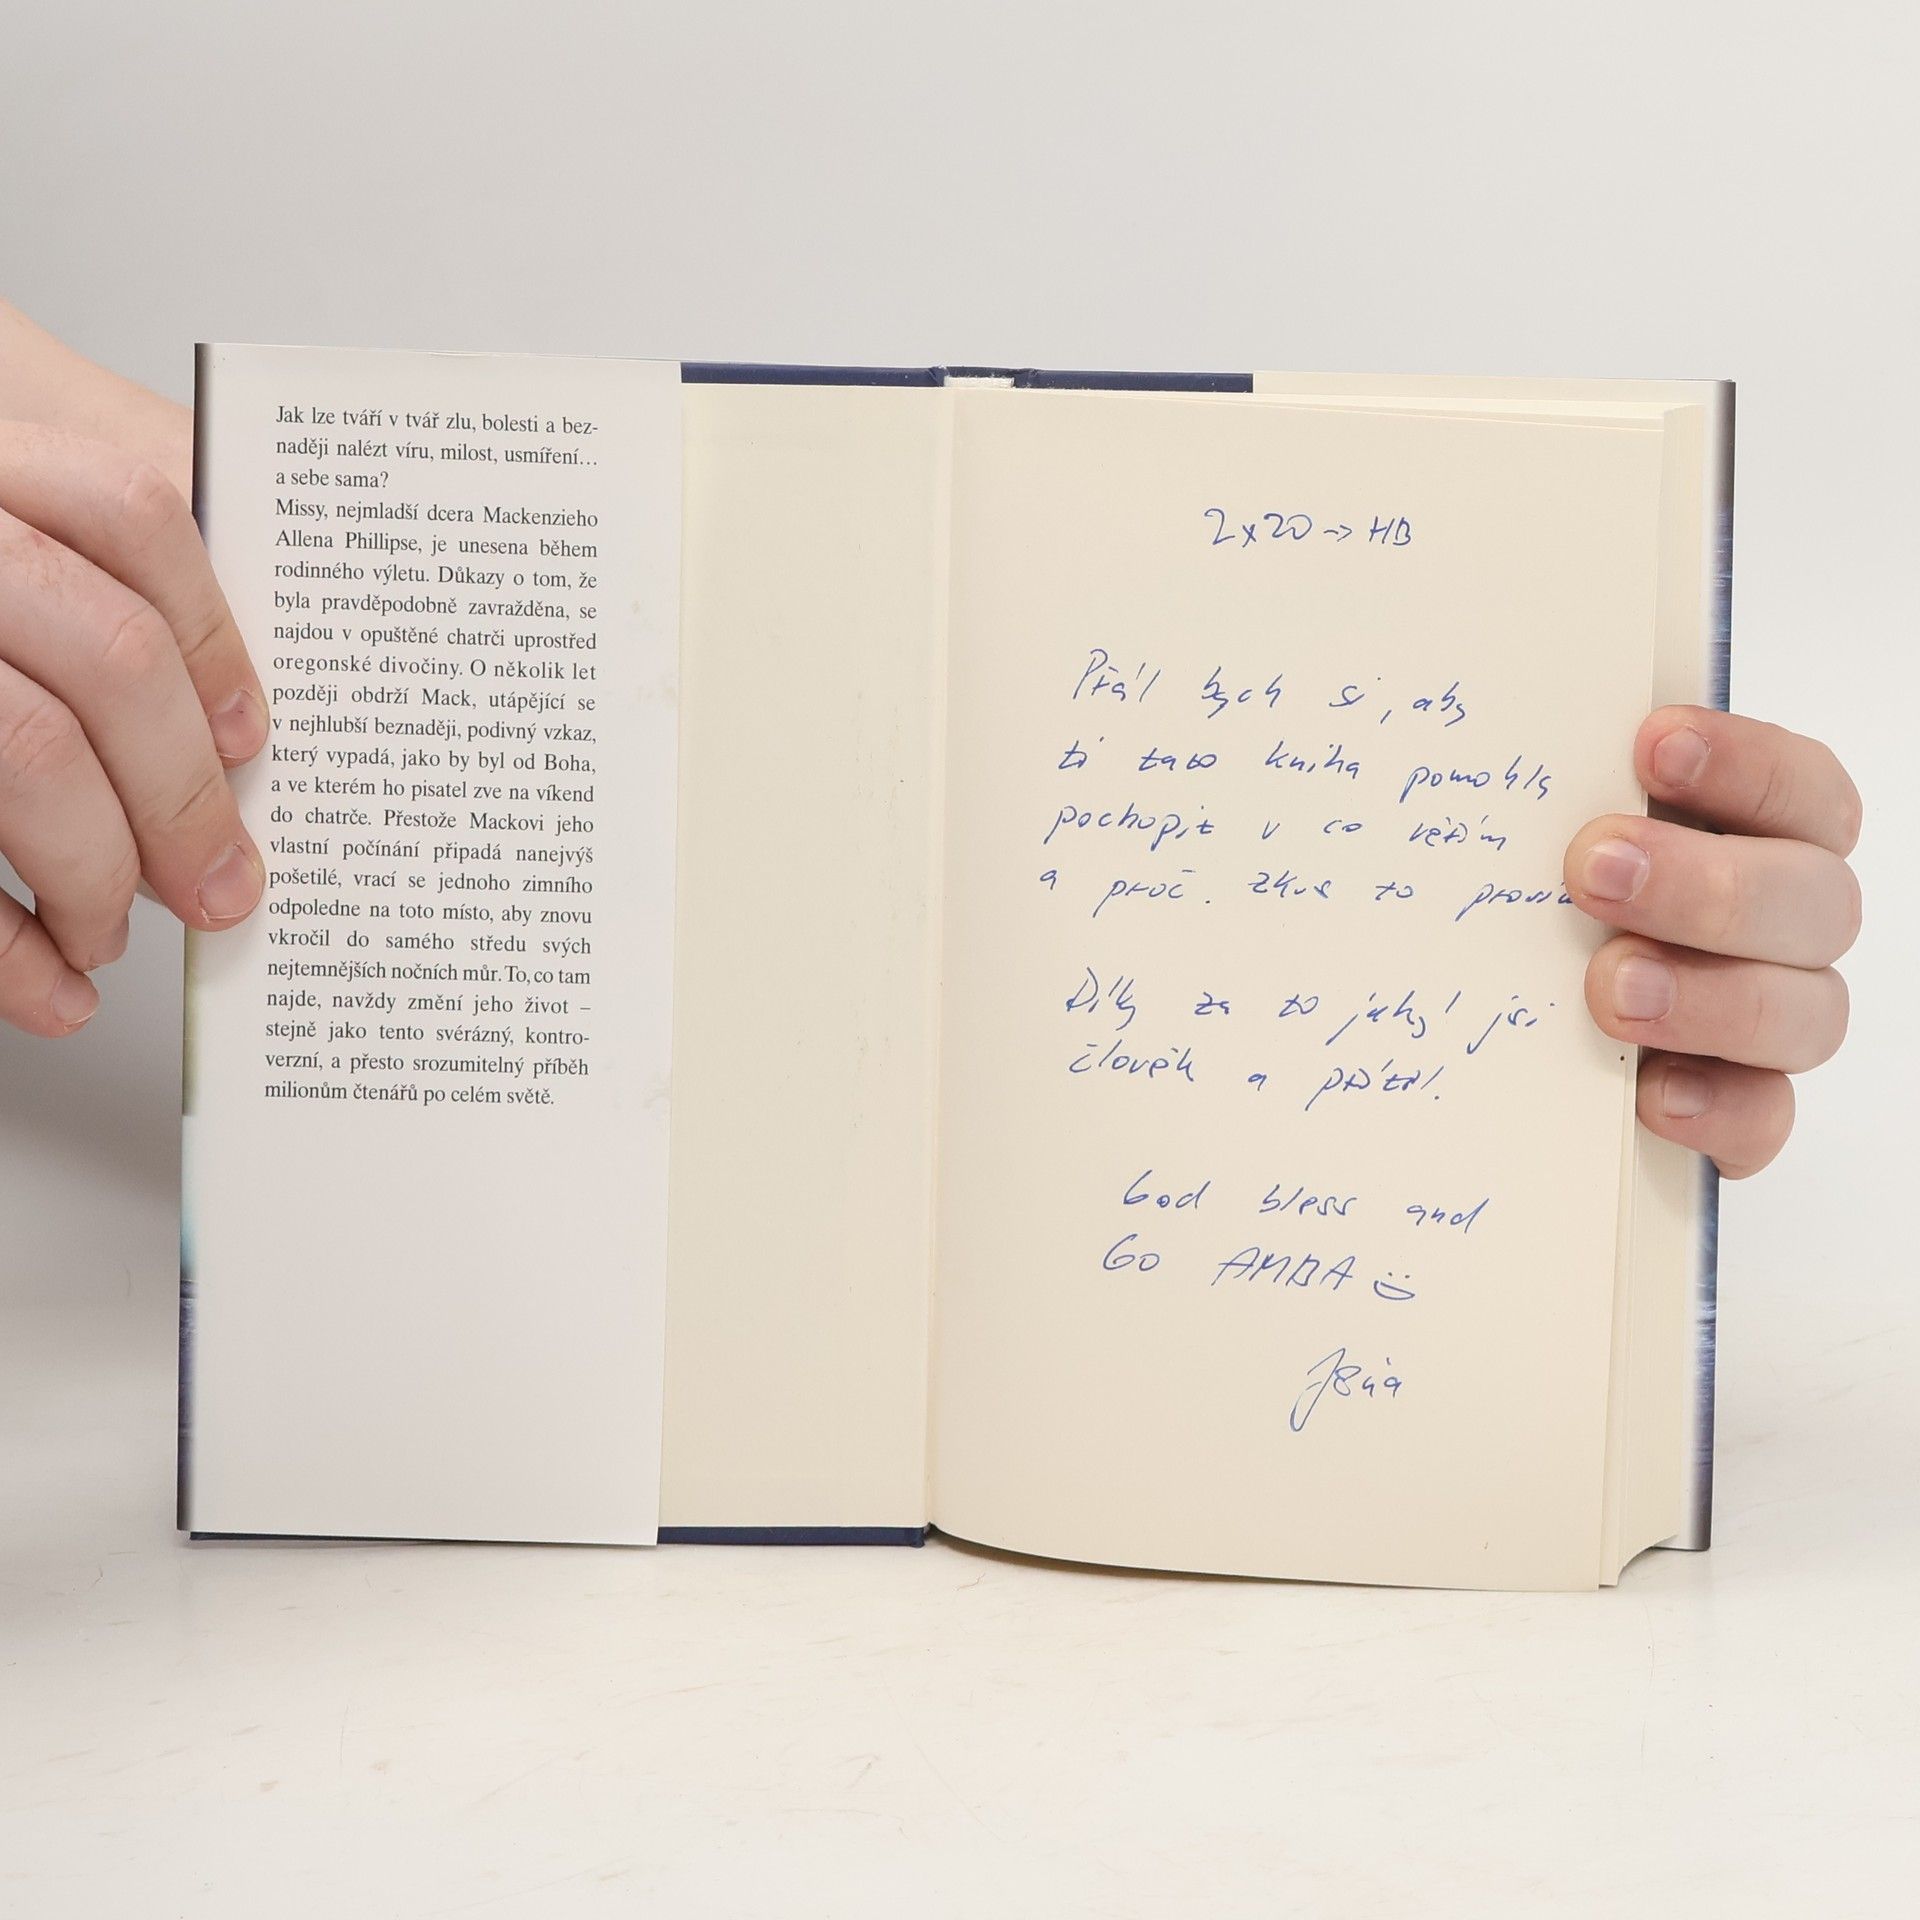 Jak lze tváří v tvář zlu, bolesti a bez-
naději nalézt víru, milost, usmíření…
a sebe sama?
Missy, nejmladší dcera Mackenzieho
Allena Phillipse, je unesena během
rodinného výletu. Důkazy o tom, že
byla pravděpodobně zavražděna, se
najdou v opuštěné chatrči uprostřed
oregonské divočiny. O několik let
později obdrží Mack, utápějící se
v nejhlubší beznaději, podivný vzkaz,
který vypadá, jako by byl od Boha,
a ve kterém ho pisatel zve na víkend
do chatrče. Přestože Mackovi jeho
vlastní počínání připadá nanejvýš
pošetilé, vrací se jednoho zimního
odpoledne na toto místo, aby znovu
vkročil do samého středu svých
nejtemnějších nočních můr. To, co tam
najde, navždy změní jeho život –
stejně jako tento svérázný, kontro-
verzní, a přesto srozumitelný příběh
milionům čtenářů po celém světě.
2x20 -> HB
Přál bych si, aby
ti tato kniha pomohla
pochopit v co věřím
a proč. Zkus to prosím
Díky za to jaký jsi
člověk a přítel.
God bless and
Go AMBA